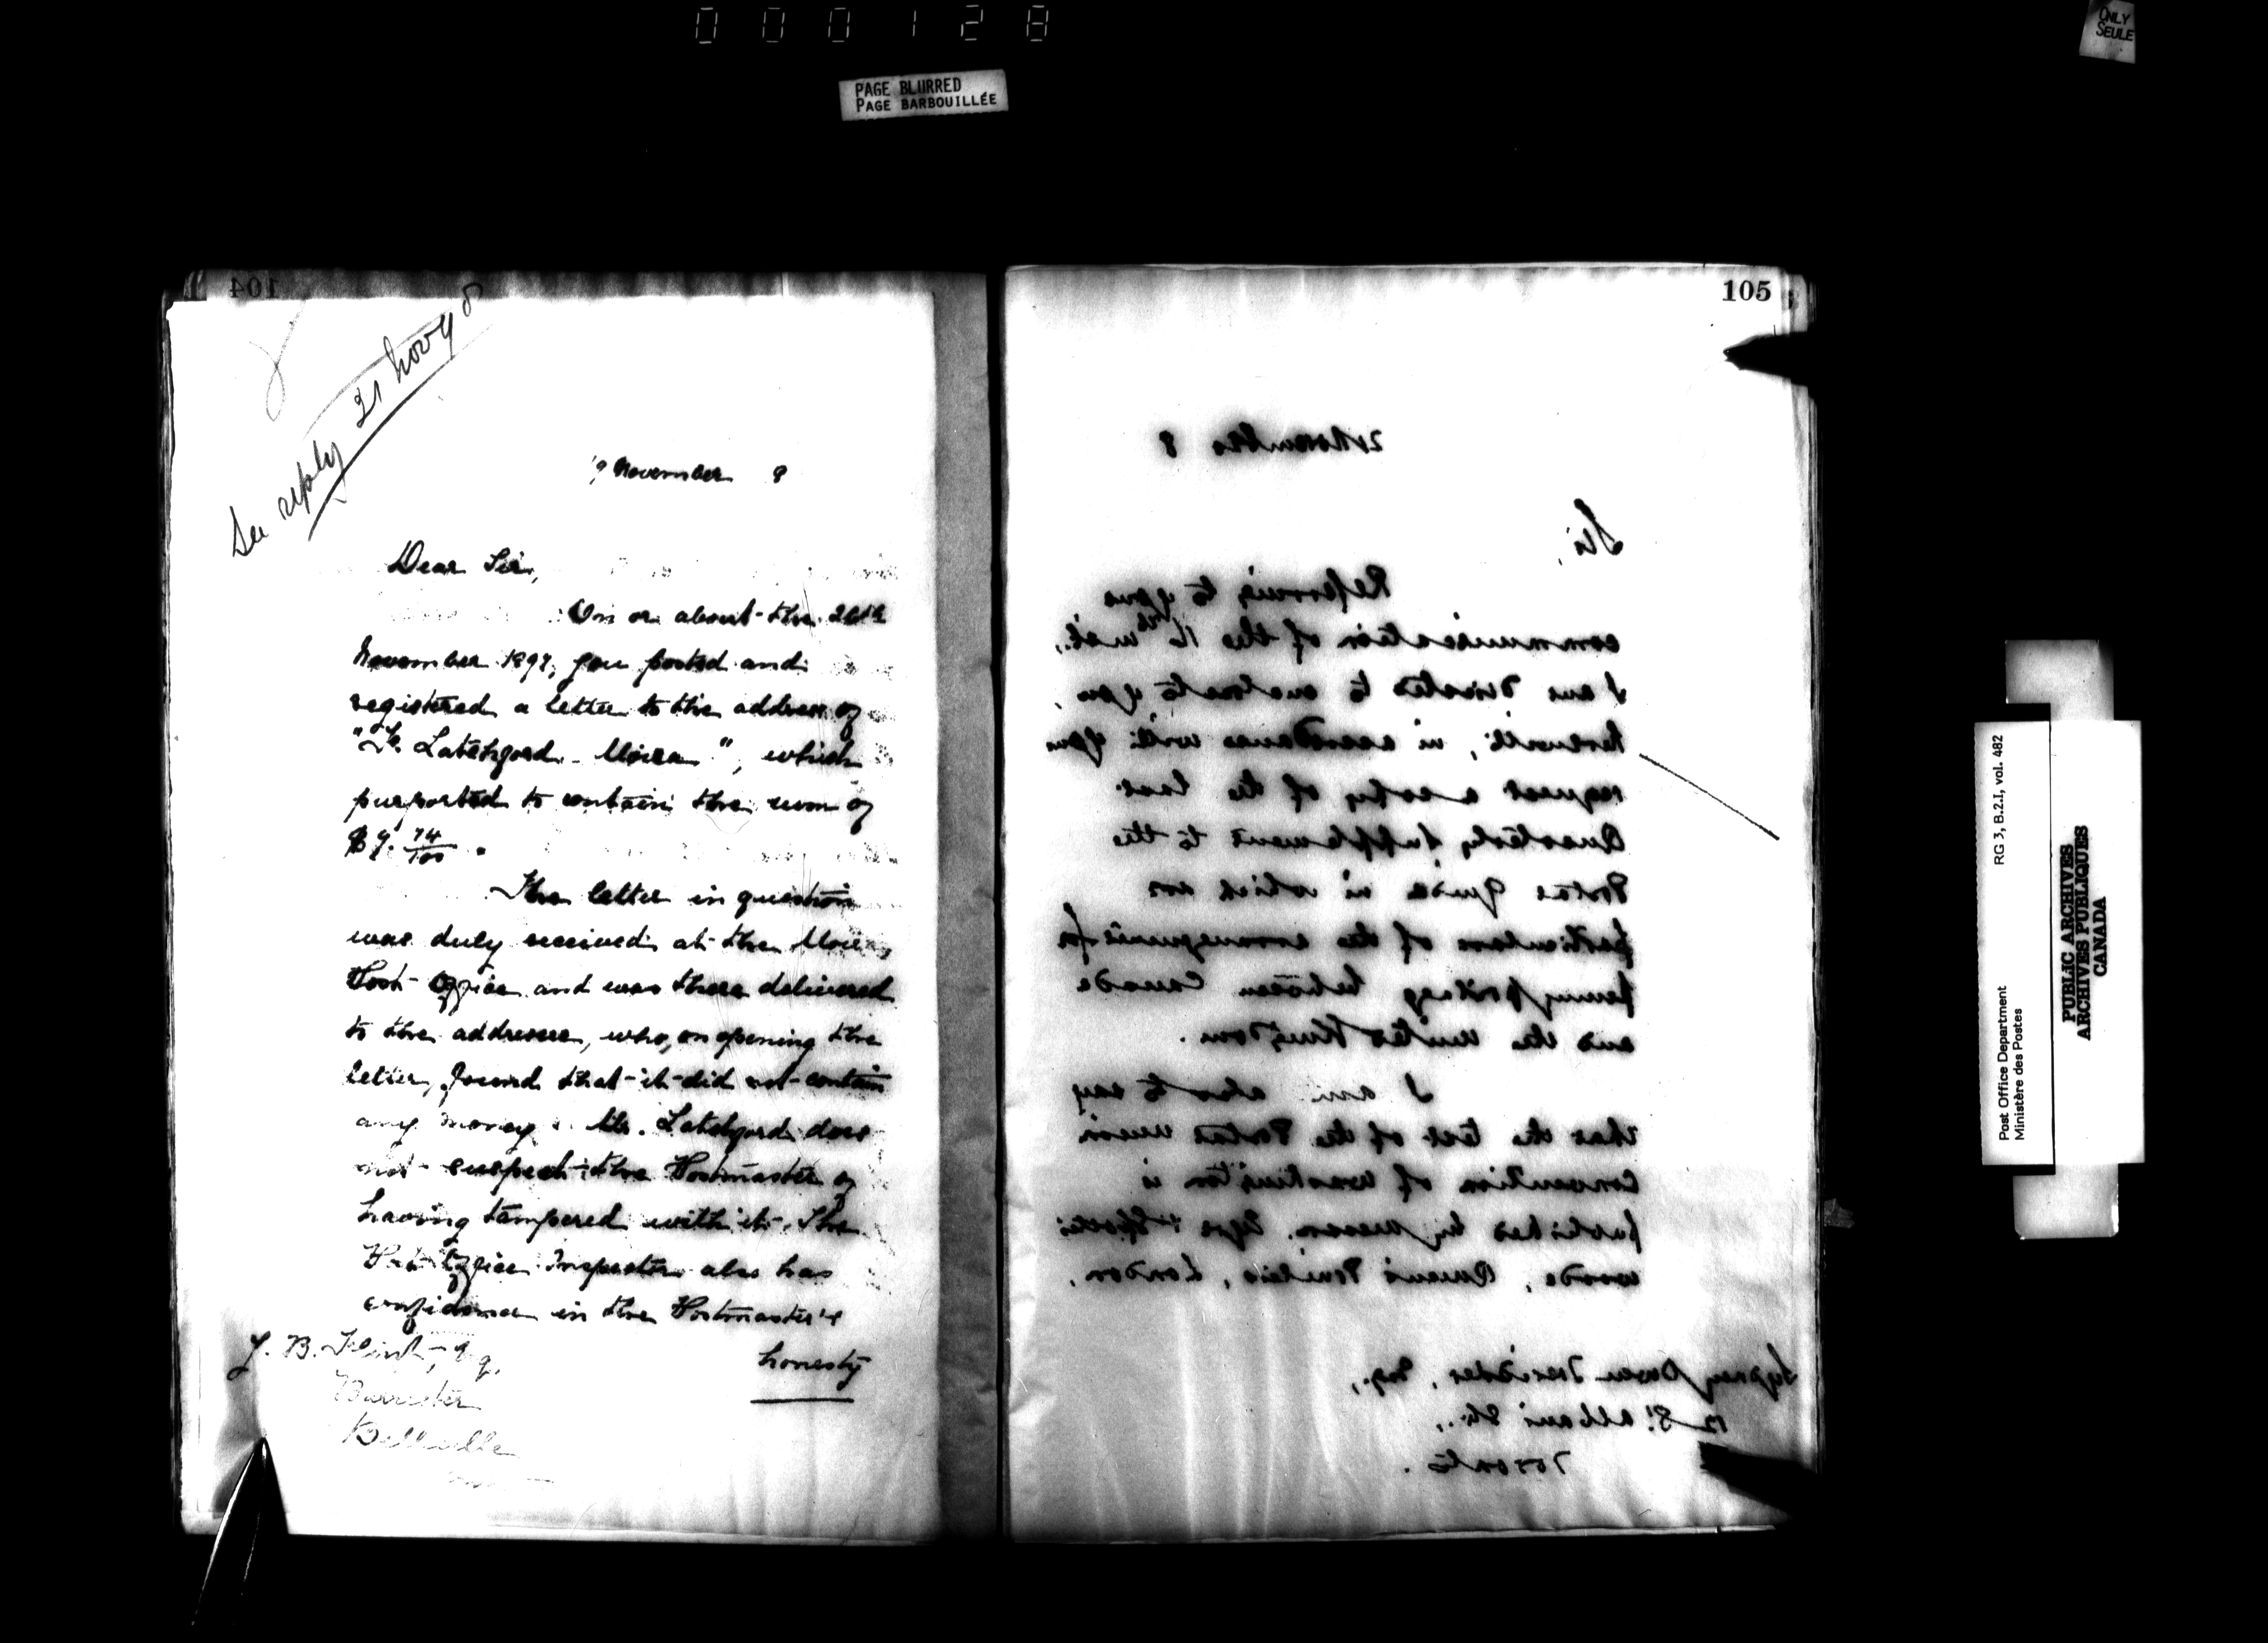 000128
PAGE BLURRED
PAGE BARBOUILLÉE
ONLY
SEULE
104
See reply 21 Nov 98
19 November 8
Dear Sir,
On or about the 26th
November 1897, you posted and
registered a letter to the address of
"F. Latchford Moira", which
purported to contain the sum of
$9. 74/100.
The letter in question
was duly received at the Moira
Post Office and was there delivered
to the addressee, who, on opening the
letter, found that it did not contain
any money. Mr. Latchford does
not suspect the Postmaster of
having tampered with it. The
Post Office Inspector also has
confidence in the Postmaster's
honesty
J. B. Flint, Esq.
Barrister
Belleville
105
21 November 8
Sir,
Referring to your
communication of the 16th inst.,
I am directed to enclose to you
herewith, in accordance with your
request a copy of the last
Quarterly Supplement to the
Postal Guide in which are
particulars of the arrangements for
penny postage between Canada
and the United Kingdom.
I am also to say
that the text of the Postal Union
Convention of Washington is
published by Messrs. Eyre & Spottis
woode, Queen's Printers, London.
Sydney Owen
12 St. Albans St.,
Toronto.
Post Office Department
Ministère des Postes
RG 3, B.2.I, vol. 482
PUBLIC ARCHIVES
ARCHIVES PUBLIQUES
CANADA